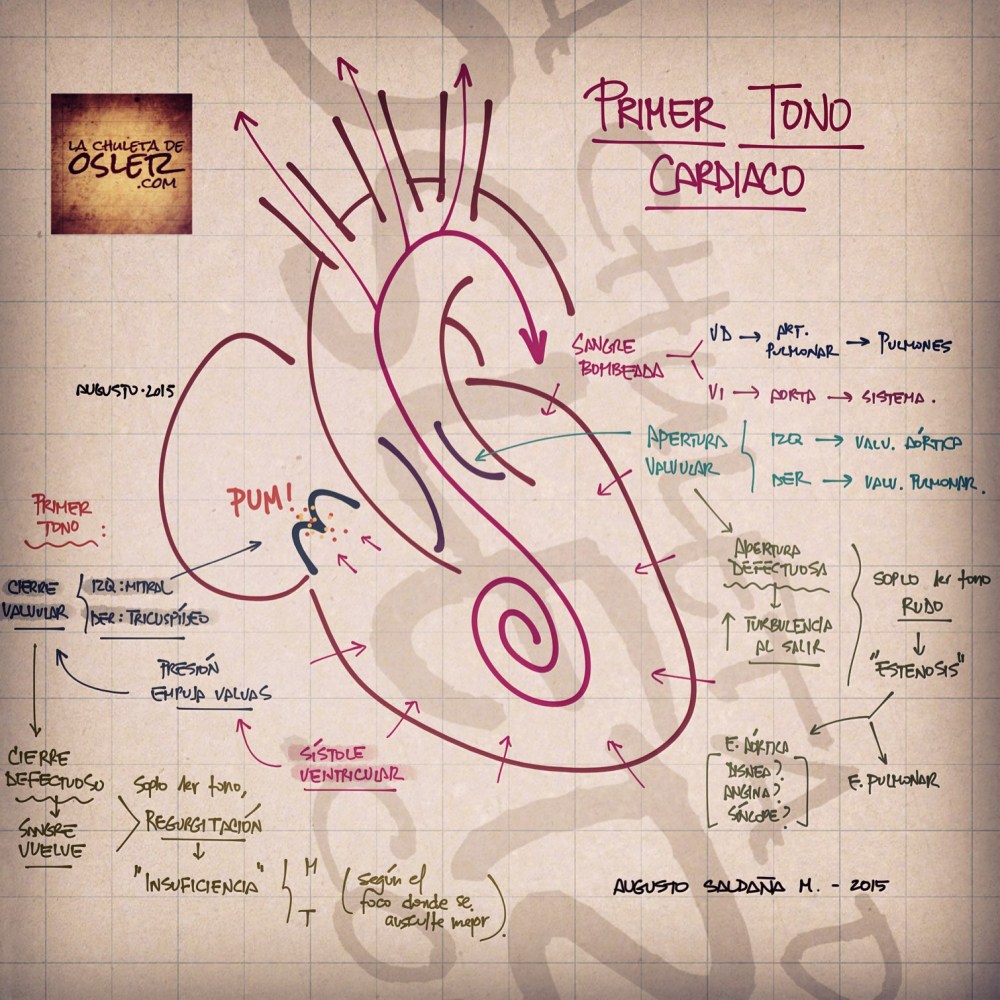 LA CHULETA DE
OSLER
.COM
PRIMER TONO
CARDIACO
AUGUSTO·2015
SANGRE
BOMBEADA
VD → ART. PULMONAR → PULMONES
VI → AORTA → SISTEMA.
APERTURA
VALVULAR
IZQ → VALV. AÓRTICA
DER → VALV. PULMONAR.
PUM!
PRIMER
TONO :
CIERRE
VALVULAR
IZQ: MITRAL
DER: TRICUSPÍDEO
PRESIÓN
EMPUJA VALVAS
SÍSTOLE
VENTRICULAR
APERTURA
DEFECTUOSA
↑ TURBULENCIA
AL SALIR
SOPLO 1er tono
RUDO
"ESTENOSIS"
E. AÓRTICA
DISNEA?
ANGINA?
SÍNCOPE?
E. PULMONAR
CIERRE
DEFECTUOSO
SANGRE
VUELVE
Soplo 1er tono,
REGURGITACIÓN
"INSUFICIENCIA"
M
T
(según el
foco donde se
ausculte mejor).
AUGUSTO SALDAÑA M. - 2015